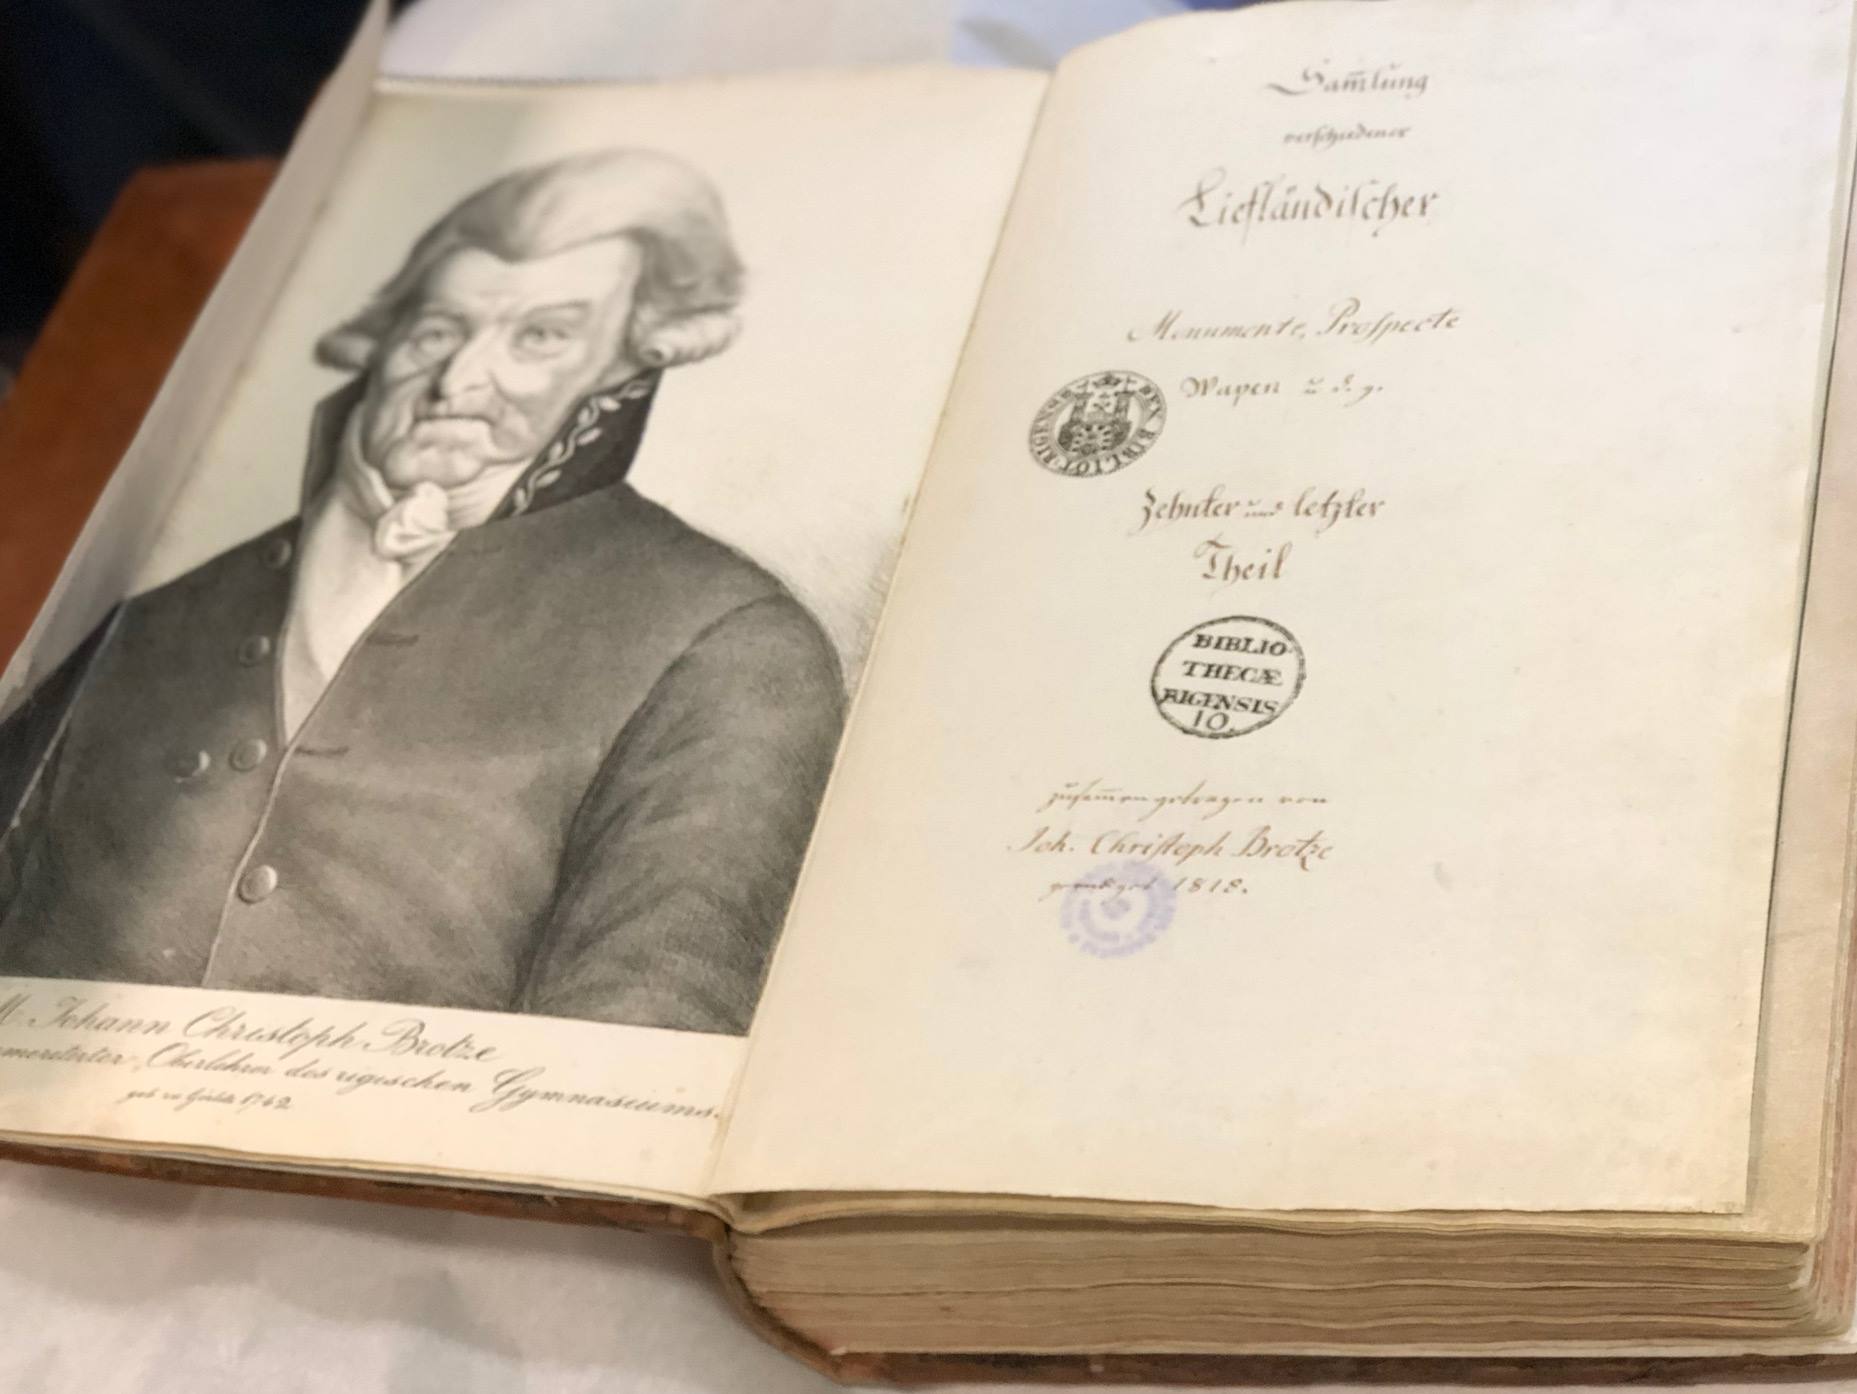 M. Johann Christoph Brotze
emeritirter Oberlehrer des rigischen Gymnasiums.
geb. zu Görlitz 1742
Sam̅lung
verschiedener
Liefländischer
Monumente, Prospecte
Wapen u. d. g.
RIGENSIS BIBLIOT
Zehnter und letzter
Theil
BIBLIO
THECÆ
RIGENSIS
10.
zusam̅engetragen von
Joh. Christoph Brotze
geendiget 1818.